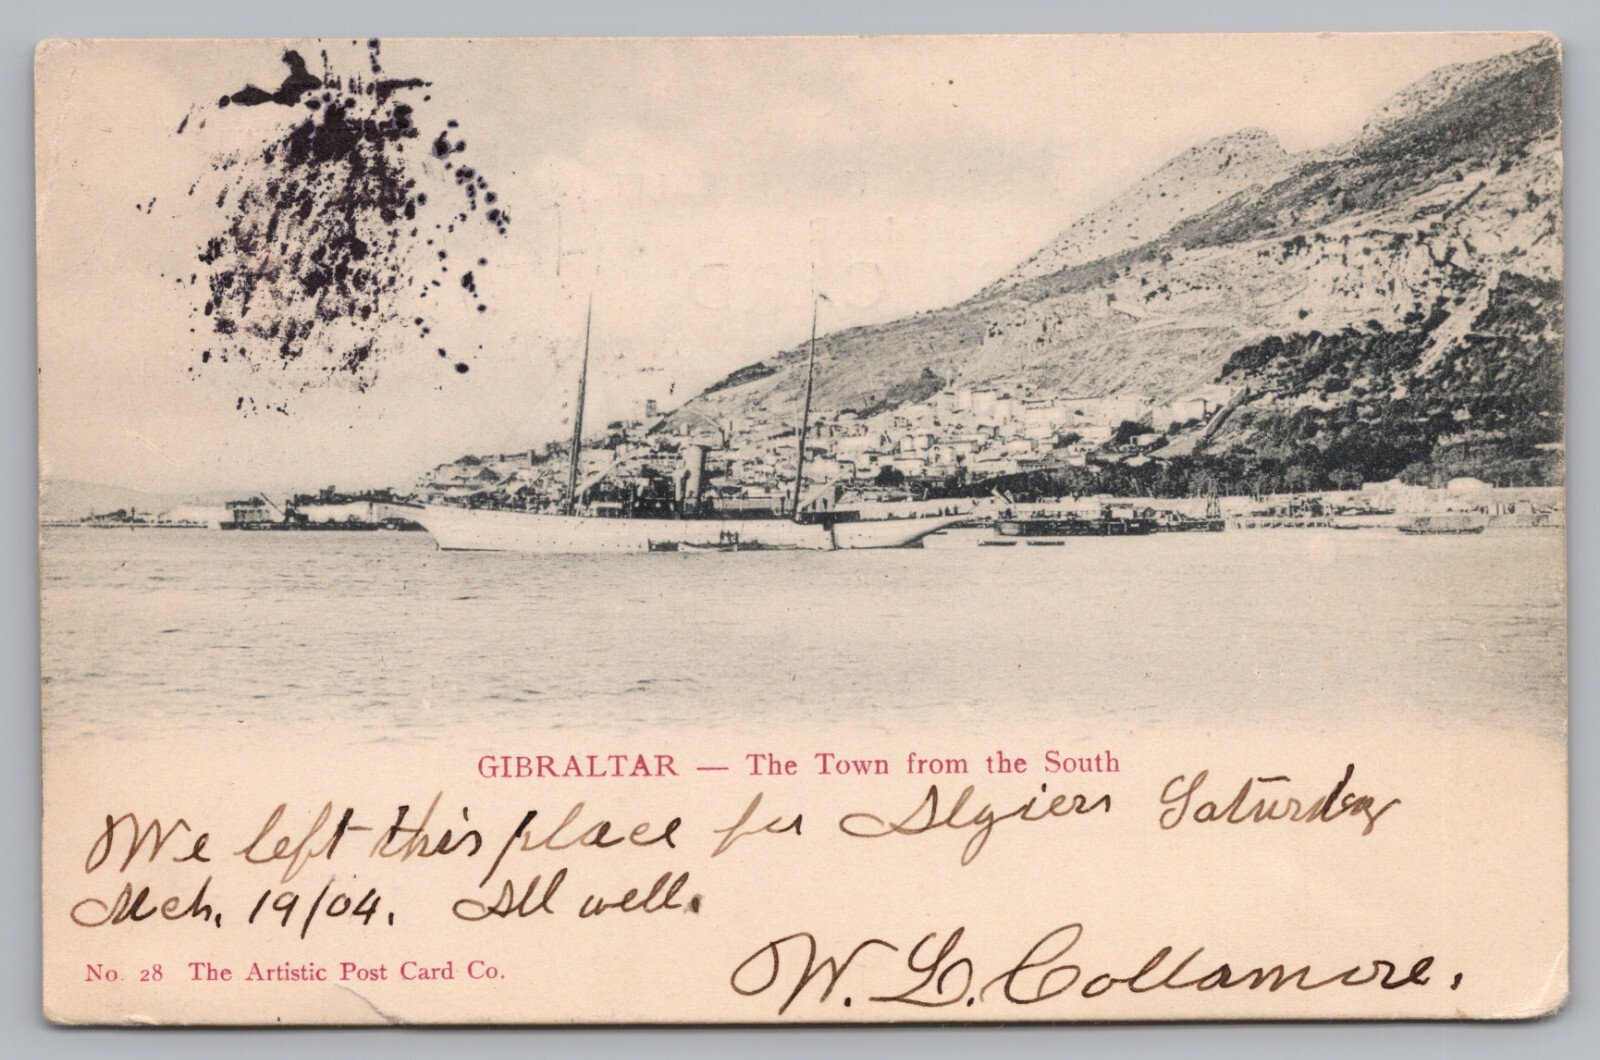 GIBRALTAR — The Town from the South
We left this place for Algiers Saturday
Mch. 19/04. All well.
W. L. Collamore.
No. 28 The Artistic Post Card Co.